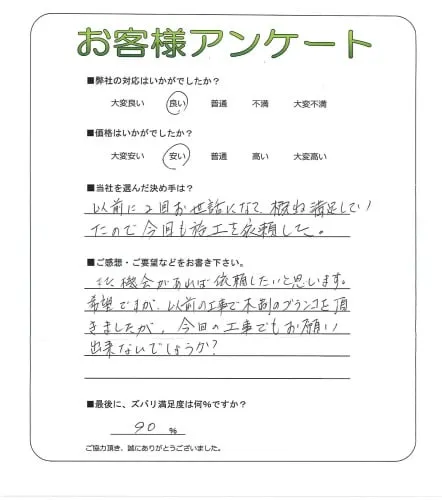 お客様アンケート
■弊社の対応はいかがでしたか?
大変良い 良い 普通 不満 大変不満
■価格はいかがでしたか?
大変安い 安い 普通 高い 大変高い
■当社を選んだ決め手は?
以前に2回お世話になって、概ね満足してい
たので今回も施工を依頼した。
■ご感想・ご要望などをお書き下さい。
又機会があれば依頼したいと思います。
希望ですが、以前の工事で木製のブランコを頂
きましたが、今回の工事でもお願い
出来ないでしょうか?
■最後に、ズバリ満足度は何%ですか?
90 %
ご協力頂き、誠にありがとうございました。